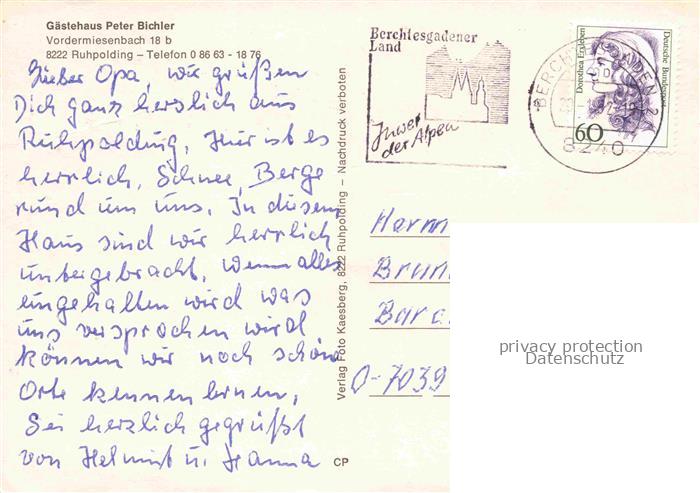 Gästehaus Peter Bichler
Vordermiesenbach 18 b
8222 Ruhpolding – Telefon 0 86 63 - 18 76
Lieber Opa, wir grüßen
Dich ganz herzlich aus
Ruhpolding, hier ist es
herrlich, Schnee, Berge
rund um uns. In diesem
Haus sind wir herrlich
untergebracht, wenn alles
eingehalten wird was
uns versprochen wird
können wir noch schöne
Orte kennen lernen,
Sei herzlich gegrüßt
von Helmut u. Hanna
CP
Verlag Foto Kaesberg, 8222 Ruhpolding – Nachdruck verboten
Berchtesgadener
Land
Juwel
der Alpen
BERCHTESGADEN 2
8240
Dorothea Erxleben
Deutsche Bundespost
60
Herm
Brun
Bara
O-7039
privacy protection
Datenschutz